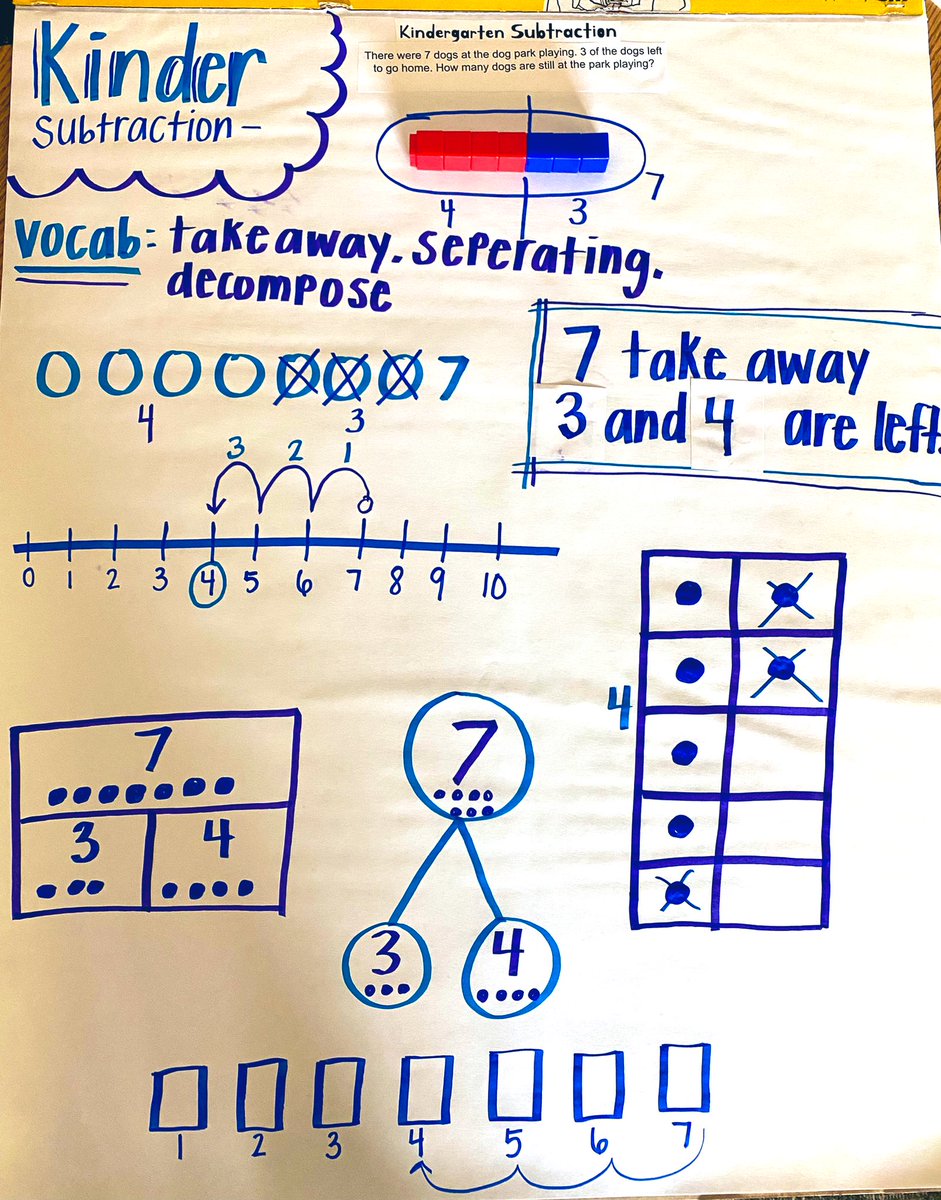 Kinder
Subtraction –
Kindergarten Subtraction
There were 7 dogs at the dog park playing. 3 of the dogs left
to go home. How many dogs are still at the park playing?
7
4 3
Vocab: take away. Seperating.
decompose
7
4 3
7 take away
3 and 4 are left.
3 2 1
0 1 2 3 4 5 6 7 8 9 10
4
7
3 4
7
3 4
1 2 3 4 5 6 7